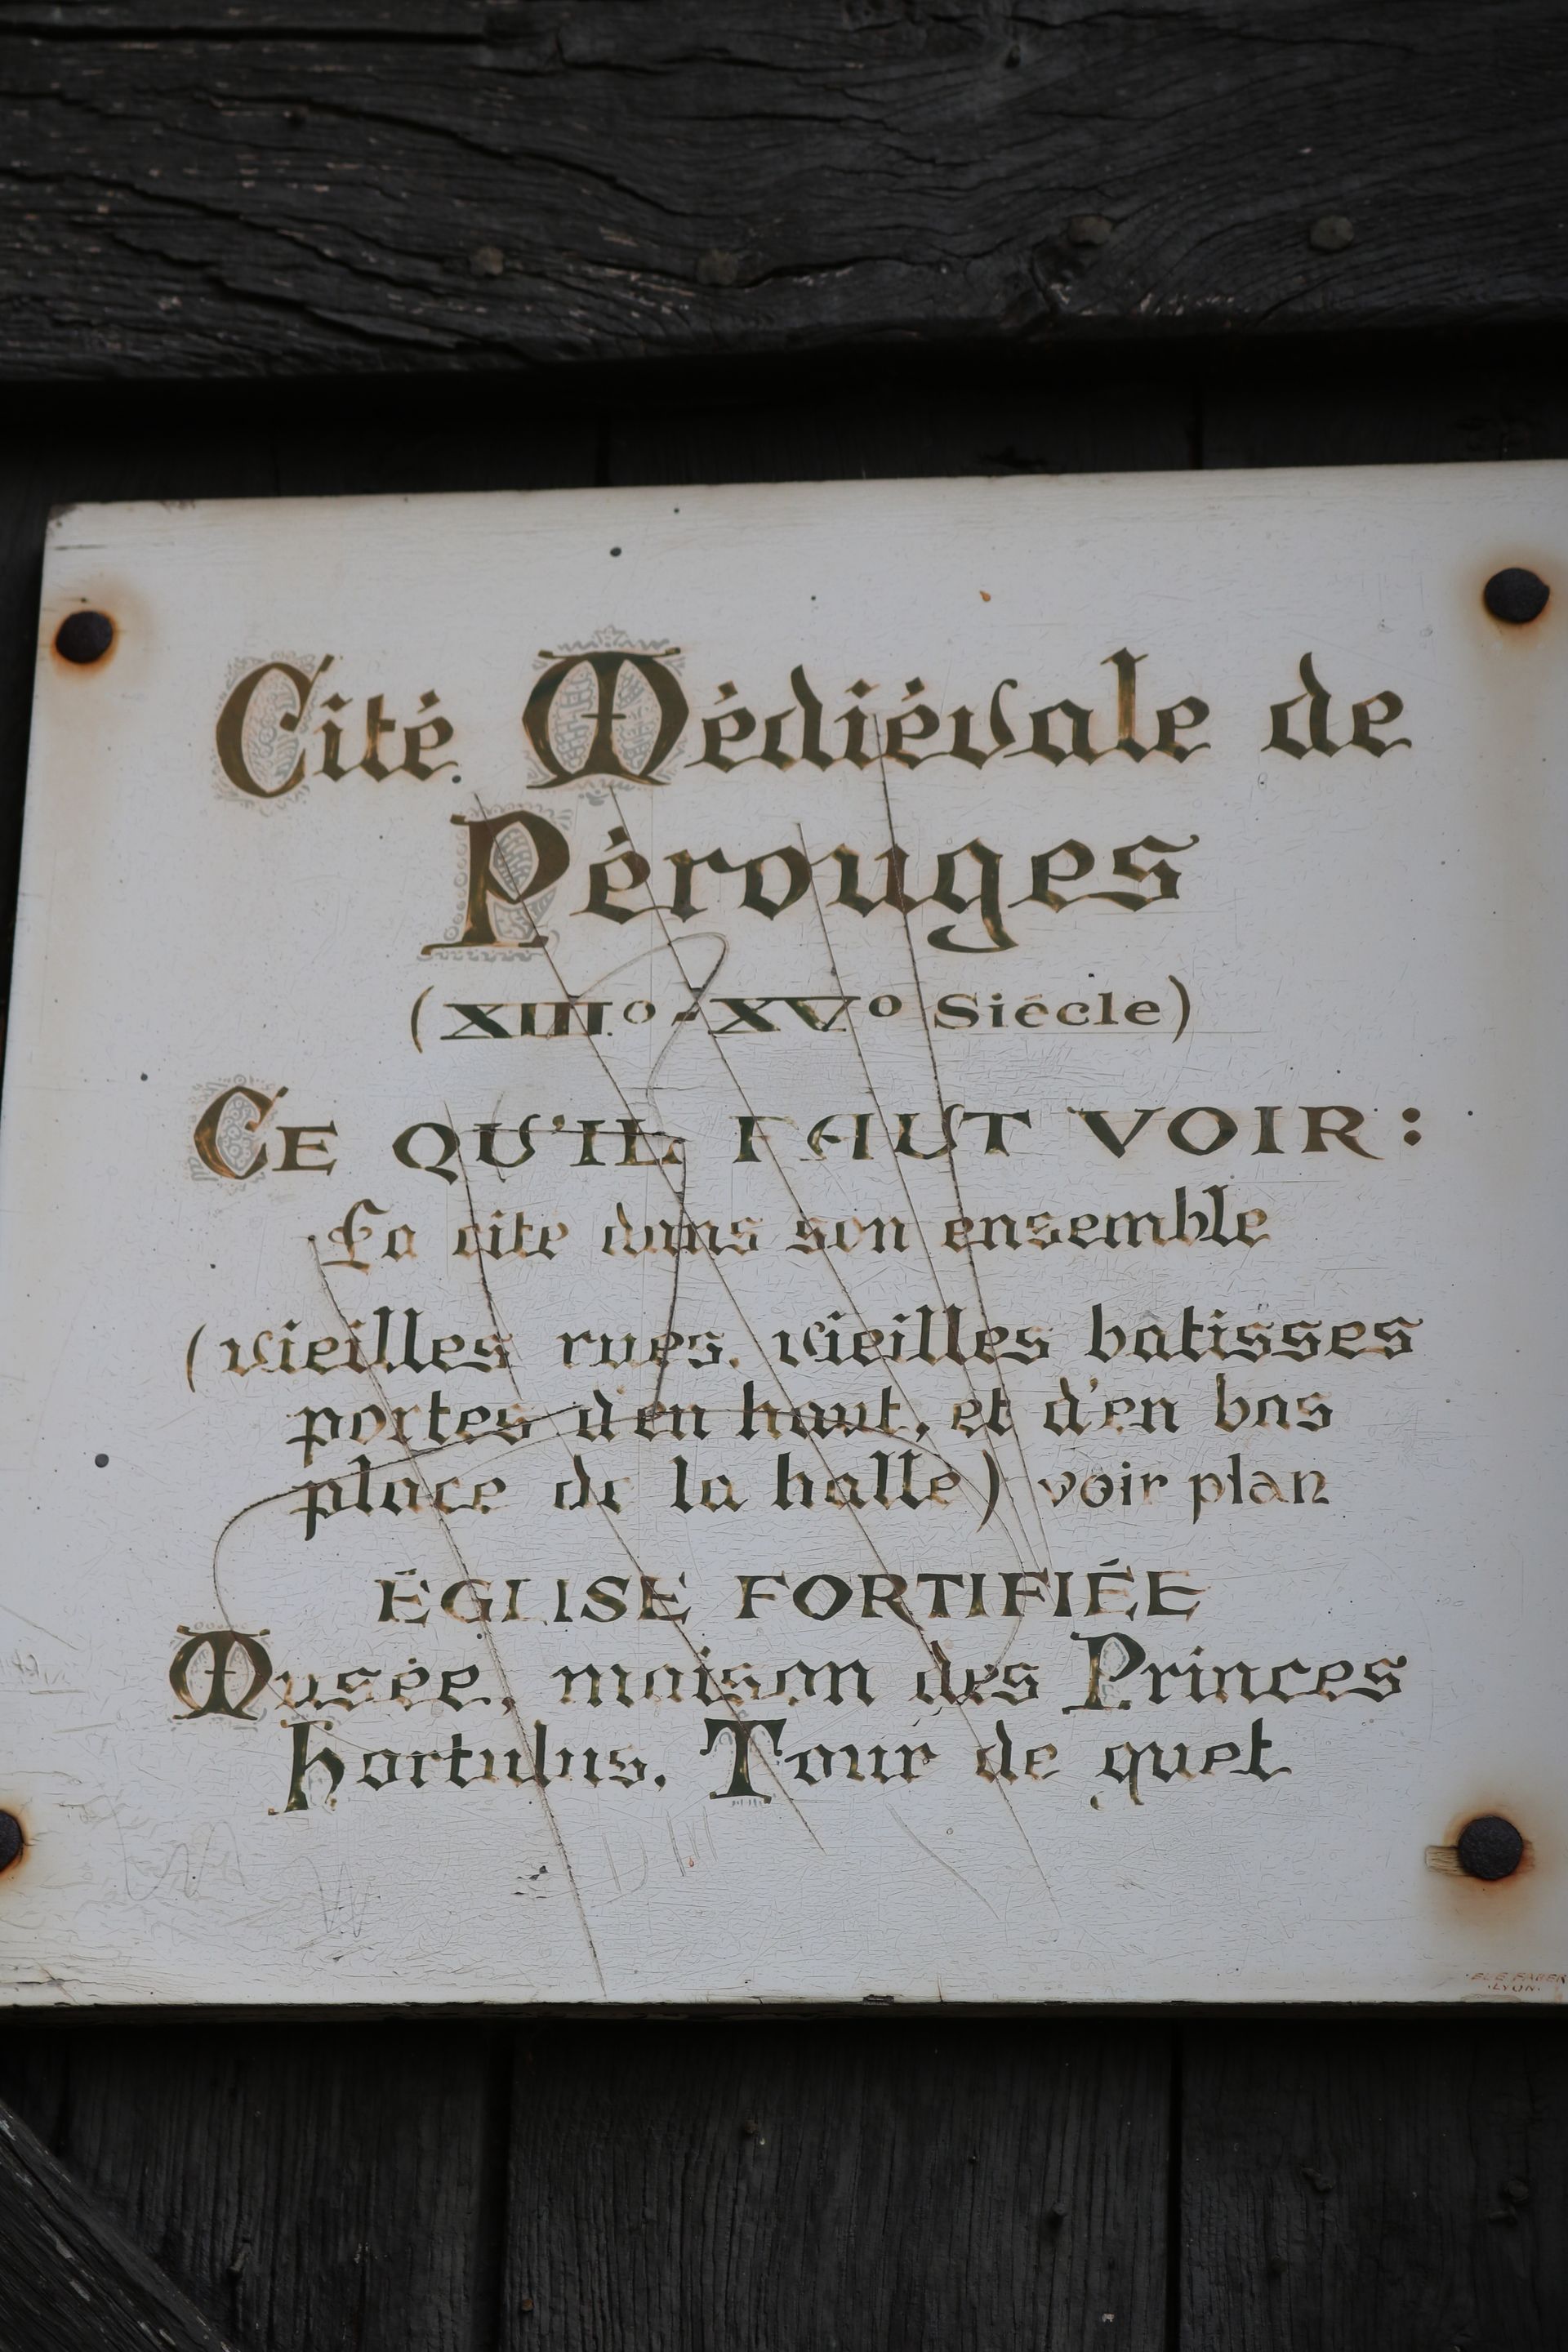 Cité Médiévale de
Pérouges
(XIIIº-XVº Siécle)
CE QU'IL FAUT VOIR:
La cite dans son ensemble
(vieilles rues. vieilles batisses
portes d'en haut, et d'en bas
place de la halle) voir plan
ÉGLISE FORTIFIÉE
Musée, maison des Princes
hortulus. Tour de guet
LYON